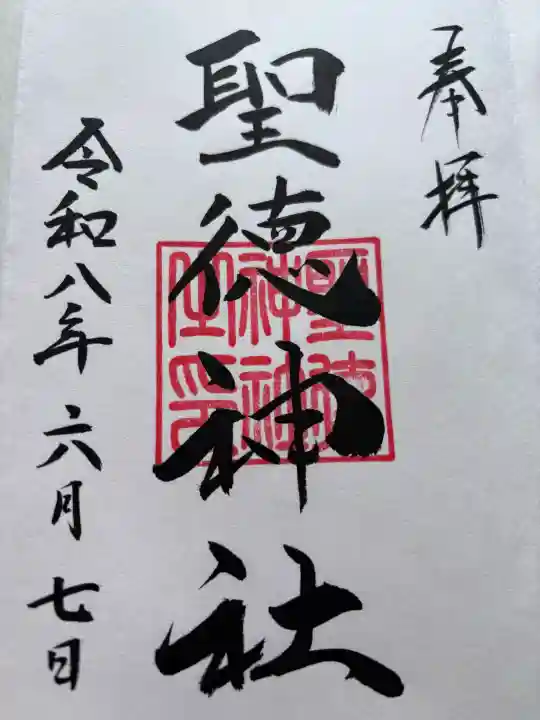 奉拝
聖徳神社
聖徳
神社
之印
令和八年六月七日